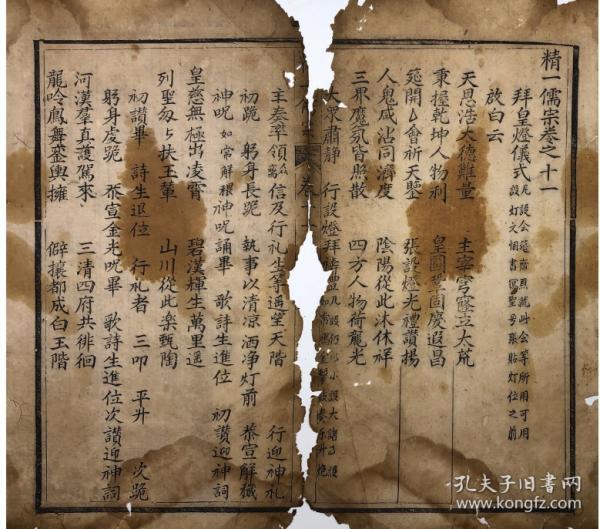 精一儒宗卷之十一
拜皇燈儀式 凡設公筵齋具就此公等所用可用 設灯文烟書匾聖号張貼灯位之前
放白云
天恩浩大德難量 主宰穹窿立太荒
秉握乾坤人物利 皇圖鞏固慶遐昌
筵開会祈天鑒 張設燈光禮讚揚
人鬼咸沾同濟度 陰陽從此沐休祥
三界魔氛皆照散 四方人物荷龍光
大衆肅靜 行設燈拜
主奏率領信及行礼生等通望天階 行迎神礼
初跪 躬身長跪 執事以清凉洒净灯前 恭宣解穢
神咒 如常解穢神咒誦畢 歌詩生進位 初讚迎神詞
皇慈無極出凌霄 碧漢輝生萬里遥
列聖匆匆扶玉輦 山川從此樂甄陶
初讚畢 詩生退位 行礼者 三叩 平升 次跪
躬身虔跪 恭宣金光咒畢 歌詩生進位次讚迎神詞
河漢羣真護駕來 三清四府共徘徊
龍吟鳳舞鑾輿擁 僻壤都成白玉階
孔夫子旧书网
www.kongfz.com